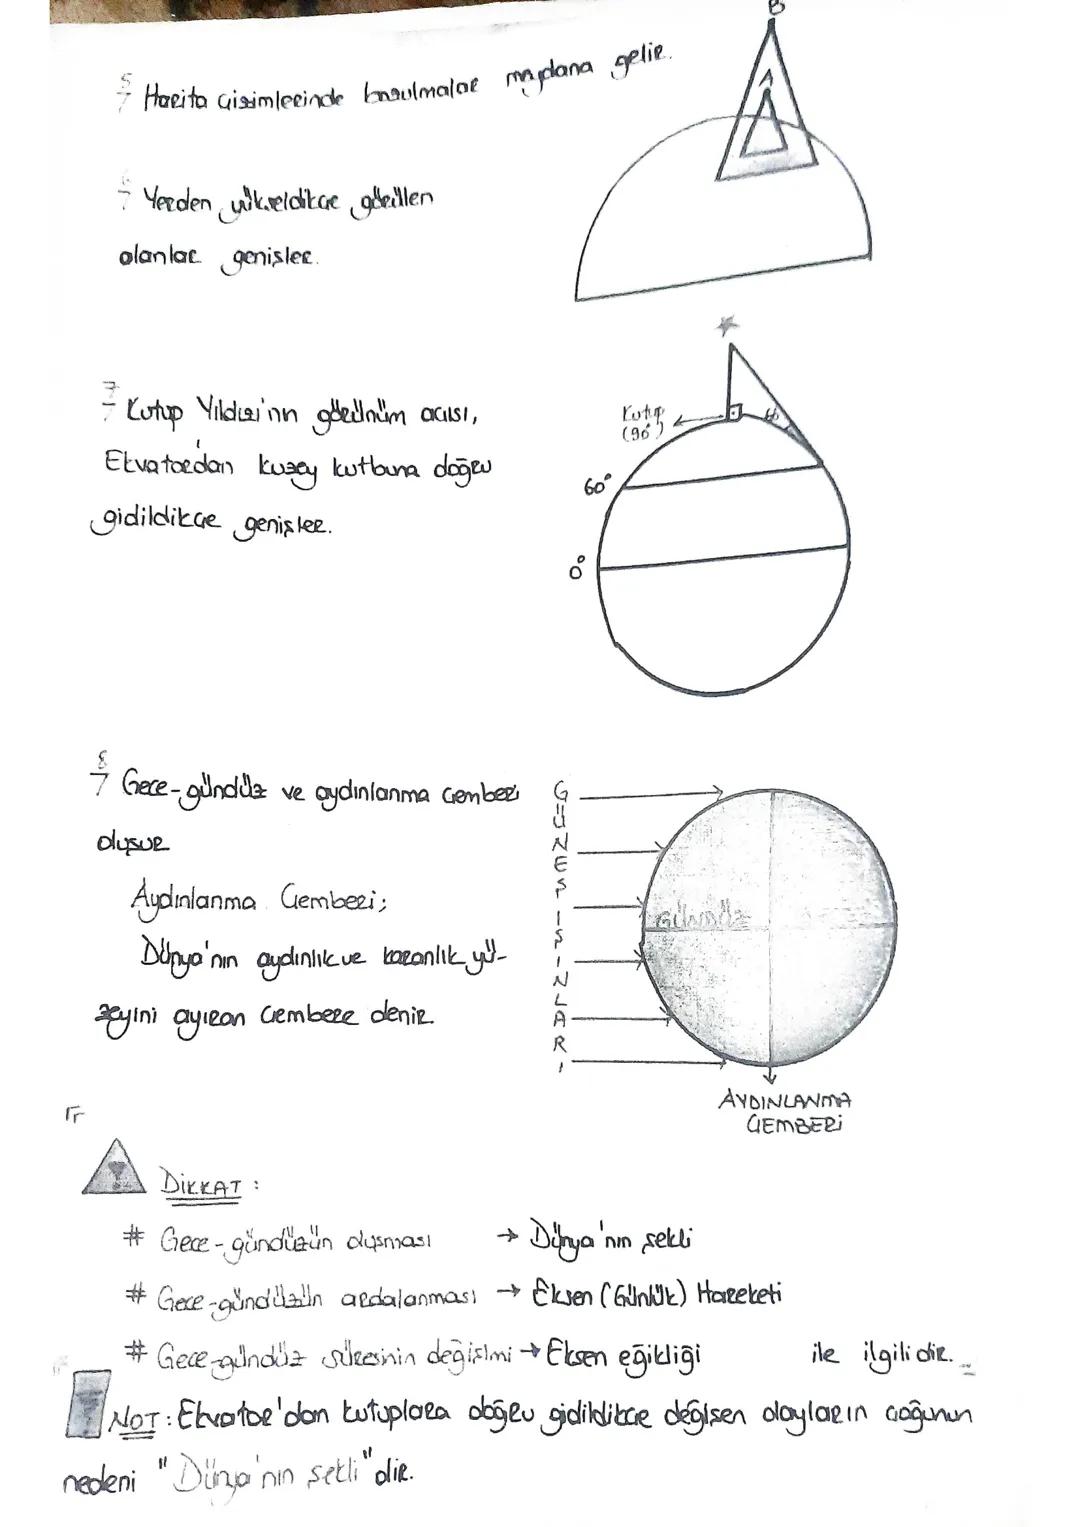 B
5/7 Harita çizimlerinde bozulmalar meydana gelir.
A
6/7 Yerden yükseldikçe görülen
alanlar genişler.
7/7 Kutup Yıldızı'nın görünüm açısı,
Ekvatordan kuzey kutbuna doğru
gidildikçe genişler.
Kutup
(90°)
60°
0°
8/7 Gece-gündüz ve aydınlanma çemberi
oluşur
Aydınlanma Çemberi;
Dünya'nın aydınlık ve karanlık yü-
zeyini ayıran çembere denir.
GÜNEŞ IŞINLARI
GÜNDÜZ
AYDINLANMA
ÇEMBERİ
DİKKAT:
# Gece-gündüzün oluşması → Dünya'nın şekli
# Gece-gündüzün ardalanması → Eksen (Günlük) Hareketi
# Gece-gündüz süresinin değişimi → Eksen eğikliği ile ilgilidir.
NOT: Ekvator'dan kutuplara doğru gidildikçe değişen olayların çoğunun
nedeni "Dünya'nın şekli"dir.